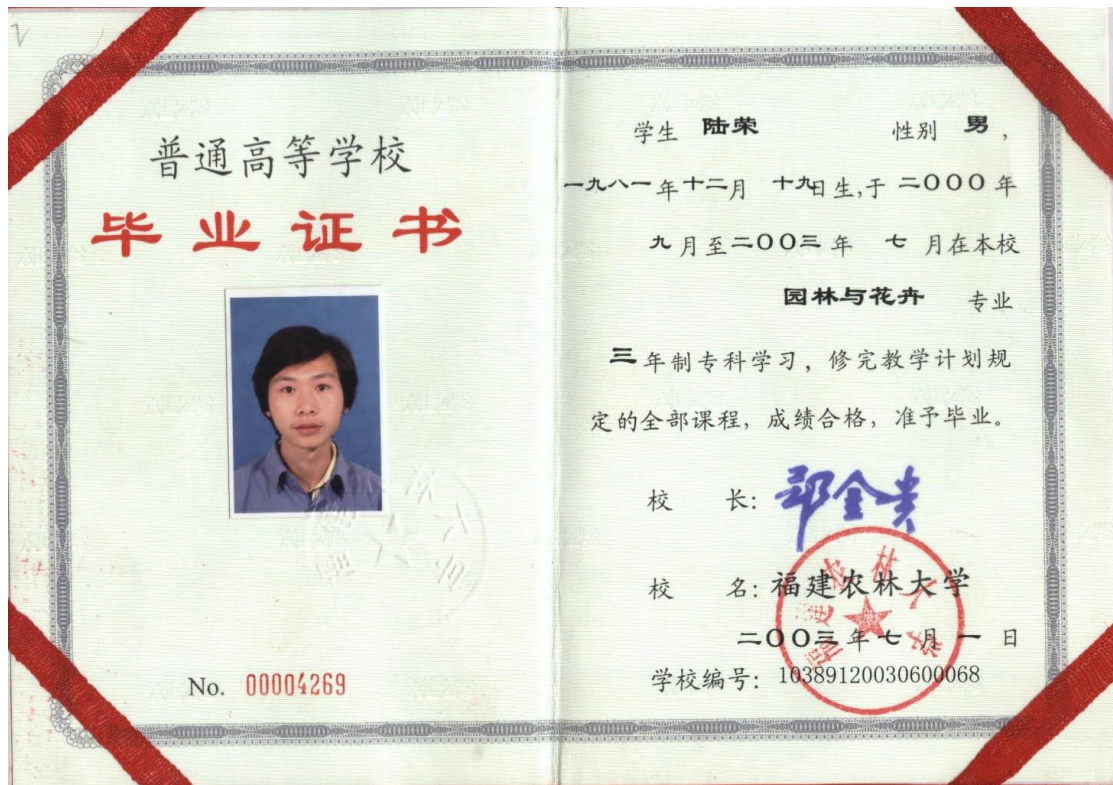 普通高等学校
毕业证书
No. 00004269
学生 陆荣 性别 男，
一九八一年十二月 十九日生,于 二000 年
九月至二00三年 七 月在本校
园林与花卉 专业
三年制专科学习，修完教学计划规
定的全部课程，成绩合格，准予毕业。
校 长: 郑金贵
校 名: 福建农林大学
福建农林大学
二00三年七月一日
学校编号: 10389120030600068